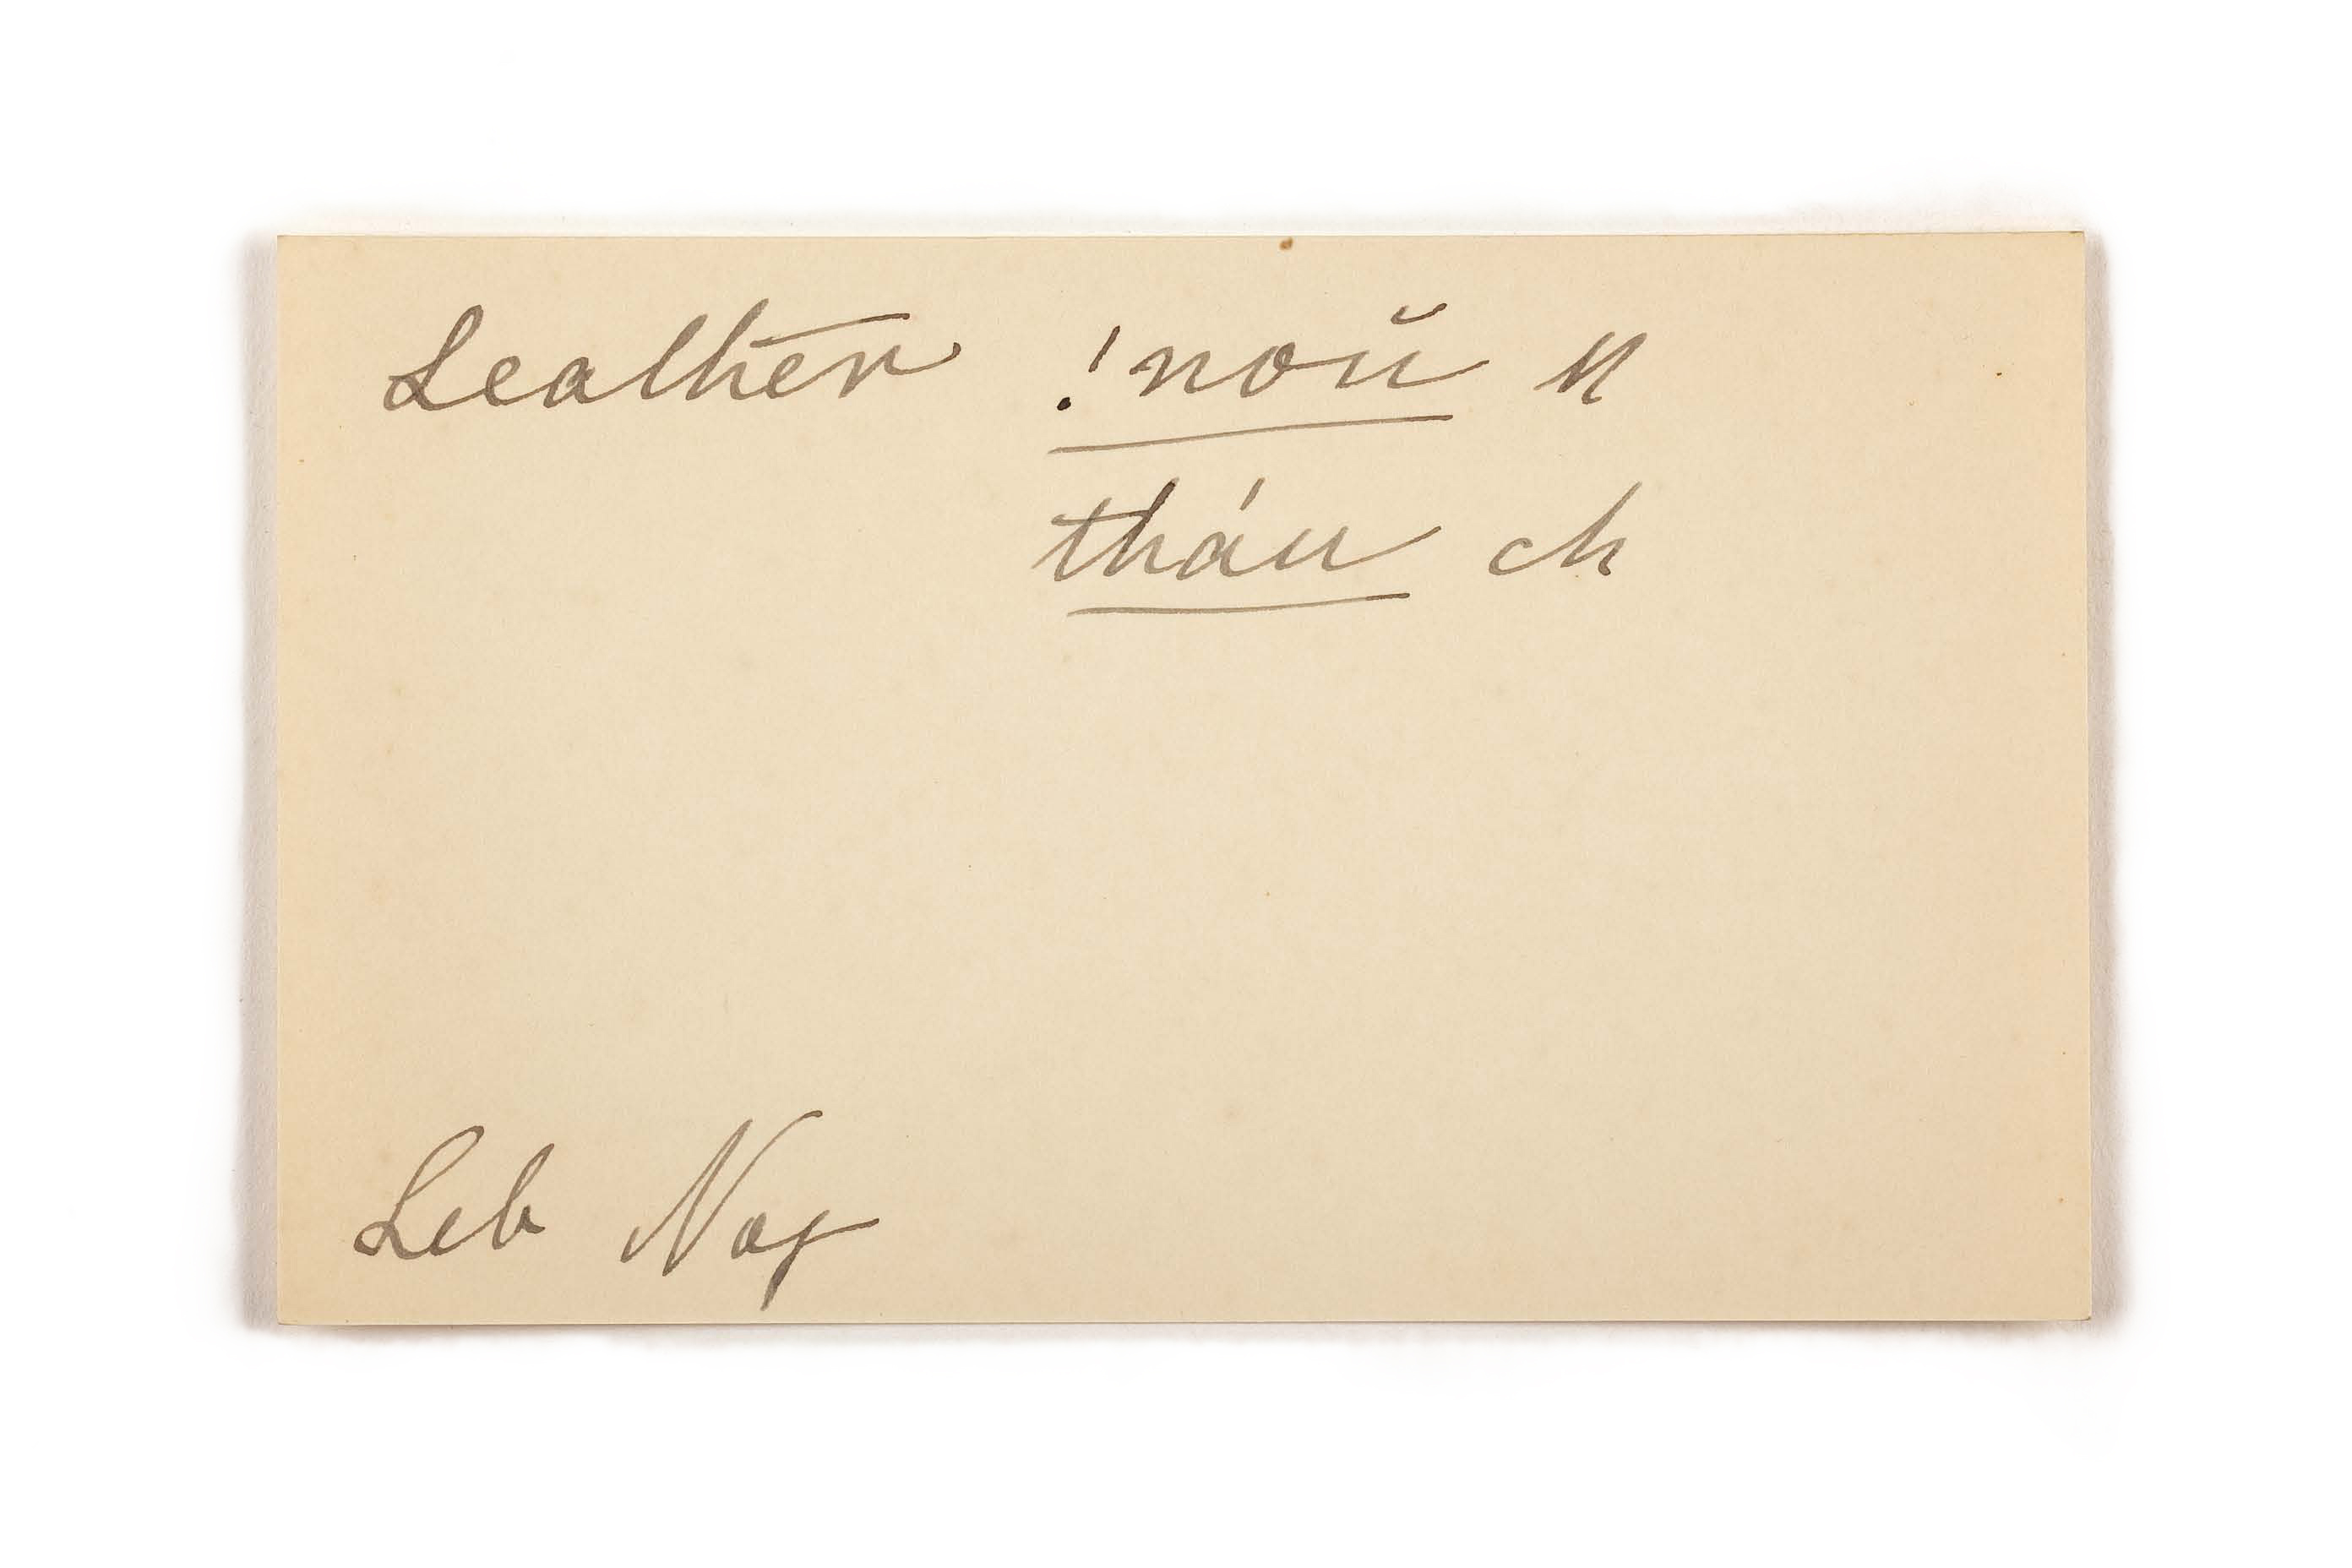 Leather !noŭ N
tháu ch
Leb Nog